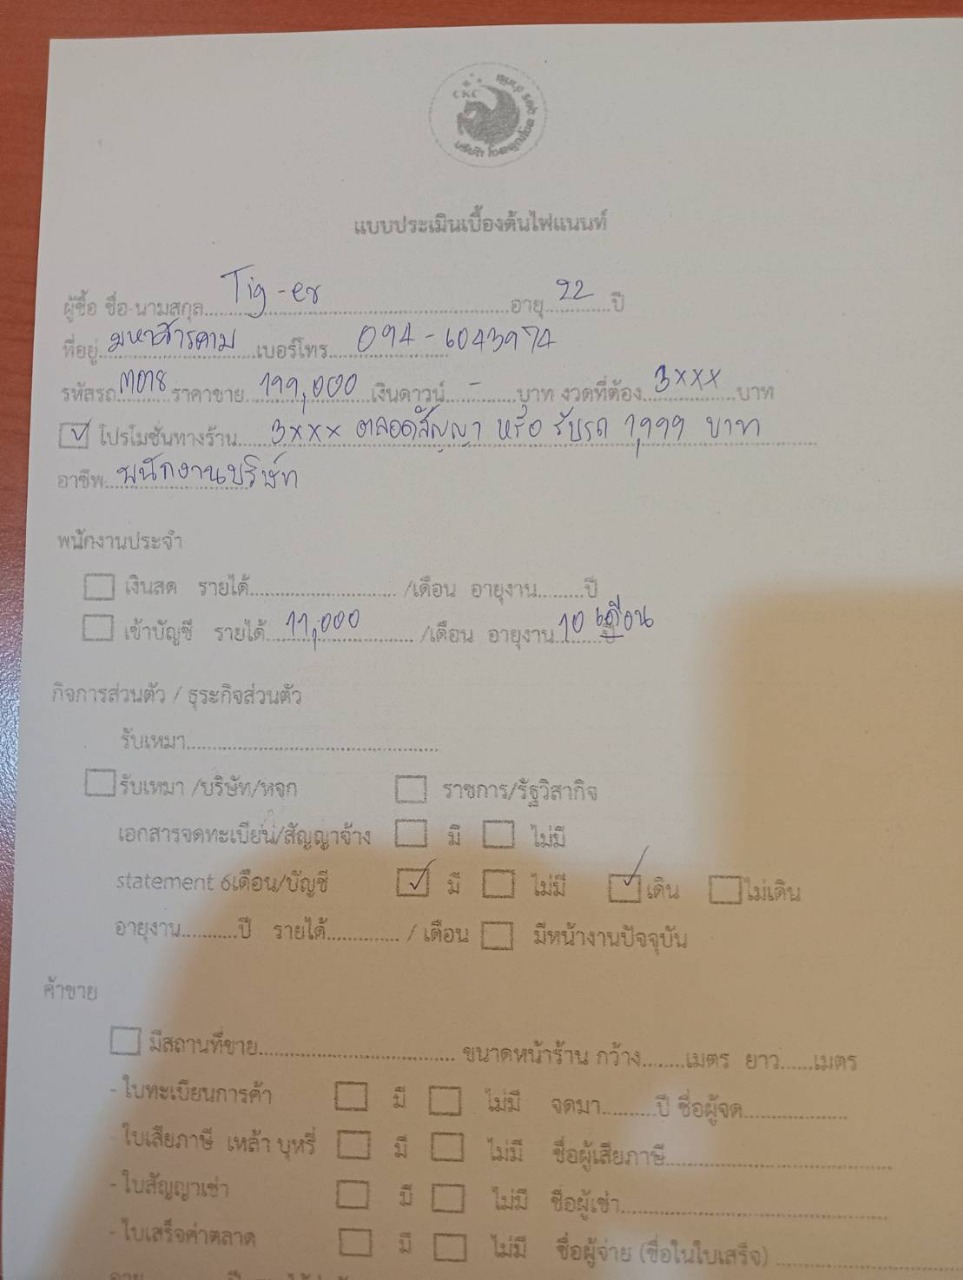 CKC
แบบประเมินเบื้องต้นไฟแนนท์
ผู้ซื้อ ชื่อ-นามสกุล Tig-er อายุ 22 ปี
ที่อยู่ มหาสารคาม เบอร์โทร 094-6043974
รหัสรถ ราคาขาย 199,000 เงินดาวน์ - บาท งวดที่ต้อง 3xxx บาท
โปรโมชั่นทางร้าน 3xxx ตลอดสัญญา หรือ รับรถ 1,999 บาท
อาชีพ พนักงานบริษัท
พนักงานประจำ
เงินสด รายได้ /เดือน อายุงาน ปี
เข้าบัญชี รายได้ 11,000 /เดือน อายุงาน 10 เดือน ปี
กิจการส่วนตัว / ธุระกิจส่วนตัว
รับเหมา
รับเหมา /บริษัท/หจก ราชการ/รัฐวิสากิจ
เอกสารจดทะเบียน/สัญญาจ้าง มี ไม่มี
statement 6เดือน/บัญชี มี ไม่มี เดิน ไม่เดิน
อายุงาน ปี รายได้ / เดือน มีหน้างานปัจจุบัน
ค้าขาย
มีสถานที่ขาย ขนาดหน้าร้าน กว้าง เมตร ยาว เมตร
- ใบทะเบียนการค้า มี ไม่มี จดมา ปี ชื่อผู้จด
- ใบเสียภาษี เหล้า บุหรี่ มี ไม่มี ชื่อผู้เสียภาษี
- ใบสัญญาเช่า มี ไม่มี ชื่อผู้เช่า
- ใบเสร็จค่าตลาด มี ไม่มี ชื่อผู้จ่าย (ชื่อในใบเสร็จ)